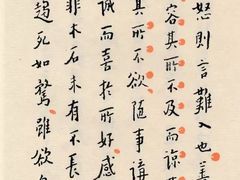 怒則言難入也善
容其所不及而諒其
其所不欲隨事講
誠而喜於所好感
非木石未有不長
趨死如騖雖欲自